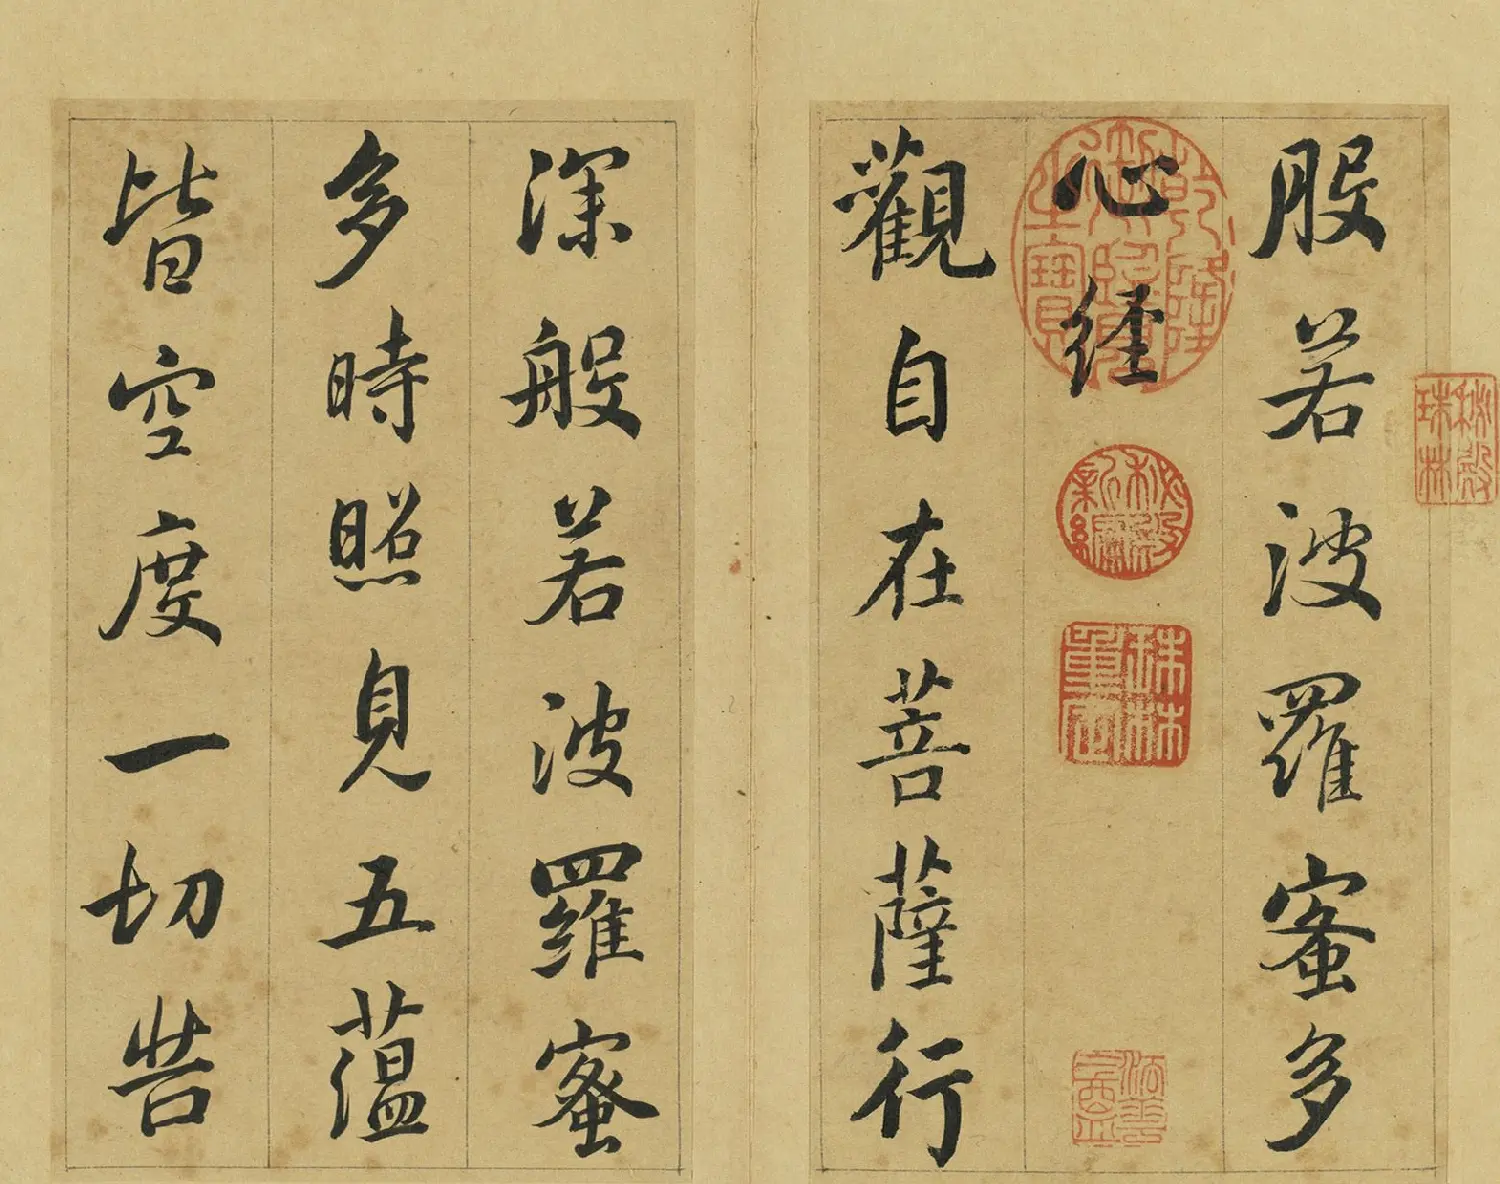 秘殿珠林
般若波羅蜜多
心經
乾隆御覽之寶
秘殿新編
珠林重定
觀自在菩薩行
深般若波羅蜜
多時照見五蘊
皆空度一切苦